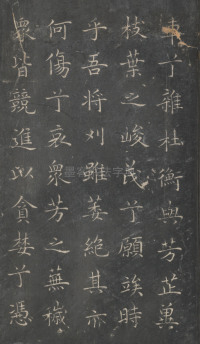 車兮雜杜衡與芳芷冀
枝葉之峻茂兮願竢時
乎吾将刈雖萎絶其亦
何傷兮哀衆芳之蕪穢
衆皆競進以貪婪兮憑